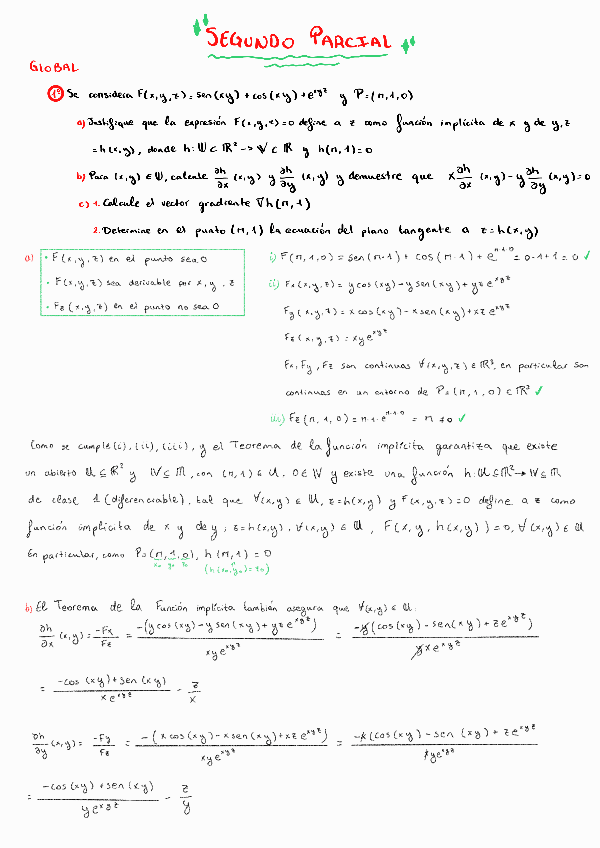 SEGUNDO PARCIAL
GLOBAL
1º Se considera F(x,y,z)=sen(xy)+cos(xy)+e^xyz y P=(π,1,0)
a) Justifique que la expresión F(x,y,z)=0 define a z como función implícita de x y de y, z
=h(x,y), donde h: U⊂ℝ² -> V⊂ℝ y h(π,1)=0
b) Para (x,y)∈U, calcule ∂h/∂x (x,y) y ∂h/∂y (x,y) y demuestre que x ∂h/∂x (x,y) - y ∂h/∂y (x,y)=0
c) 1. Calcule el vector gradiente ∇h(π,1)
2. Determine en el punto (π,1) la ecuación del plano tangente a z=h(x,y)
a) • F(x,y,z) en el punto sea 0
• F(x,y,z) sea derivable por x, y, z
• Fz(x,y,z) en el punto no sea 0
i) F(π,1,0)=sen(π·1)+cos(π·1)+e^π·1·0=0-1+1=0 ✓
ii) Fx(x,y,z)=ycos(xy)-ysen(xy)+yze^xyz
Fy(x,y,z)=xcos(xy)-xsen(xy)+xze^xyz
Fz(x,y,z)=xye^xyz
Fx, Fy, Fz son continuas ∀(x,y,z)∈ℝ³, en particular son
continuas en un entorno de P=(π,1,0)∈ℝ³ ✓
iii) Fz(π,1,0)=π·1·e^π·1·0=π≠0 ✓
Como se cumple (i), (ii), (iii), y el Teorema de la función implícita garantiza que existe
un abierto U⊆ℝ² y W⊆ℝ, con (π,1)∈U, 0∈W y existe una función h: U⊆ℝ²→W⊆ℝ
de clase 1 (diferenciable), tal que ∀(x,y)∈U, z=h(x,y) y F(x,y,z)=0 define a z como
función implícita de x y de y; z=h(x,y), ∀(x,y)∈U, F(x,y,h(x,y))=0, ∀(x,y)∈U
En particular, como P=(π,1,0), h(π,1)=0
x₀ y₀ z₀ (h(x₀,y₀)=z₀)
b) El Teorema de la Función implícita también asegura que ∀(x,y)∈U:
∂h/∂x (x,y) = -Fx/Fz = -(ycos(xy)-ysen(xy)+yze^xyz)/xye^xyz = -y(cos(xy)-sen(xy)+ze^xyz)/yxe^xyz
= -cos(xy)+sen(xy)/xe^xyz - z/x
∂h/∂y (x,y) = -Fy/Fz = -(xcos(xy)-xsen(xy)+xze^xyz)/xye^xyz = -x(cos(xy)-sen(xy)+ze^xyz)/xye^xyz
= -cos(xy)+sen(xy)/ye^xyz - z/y